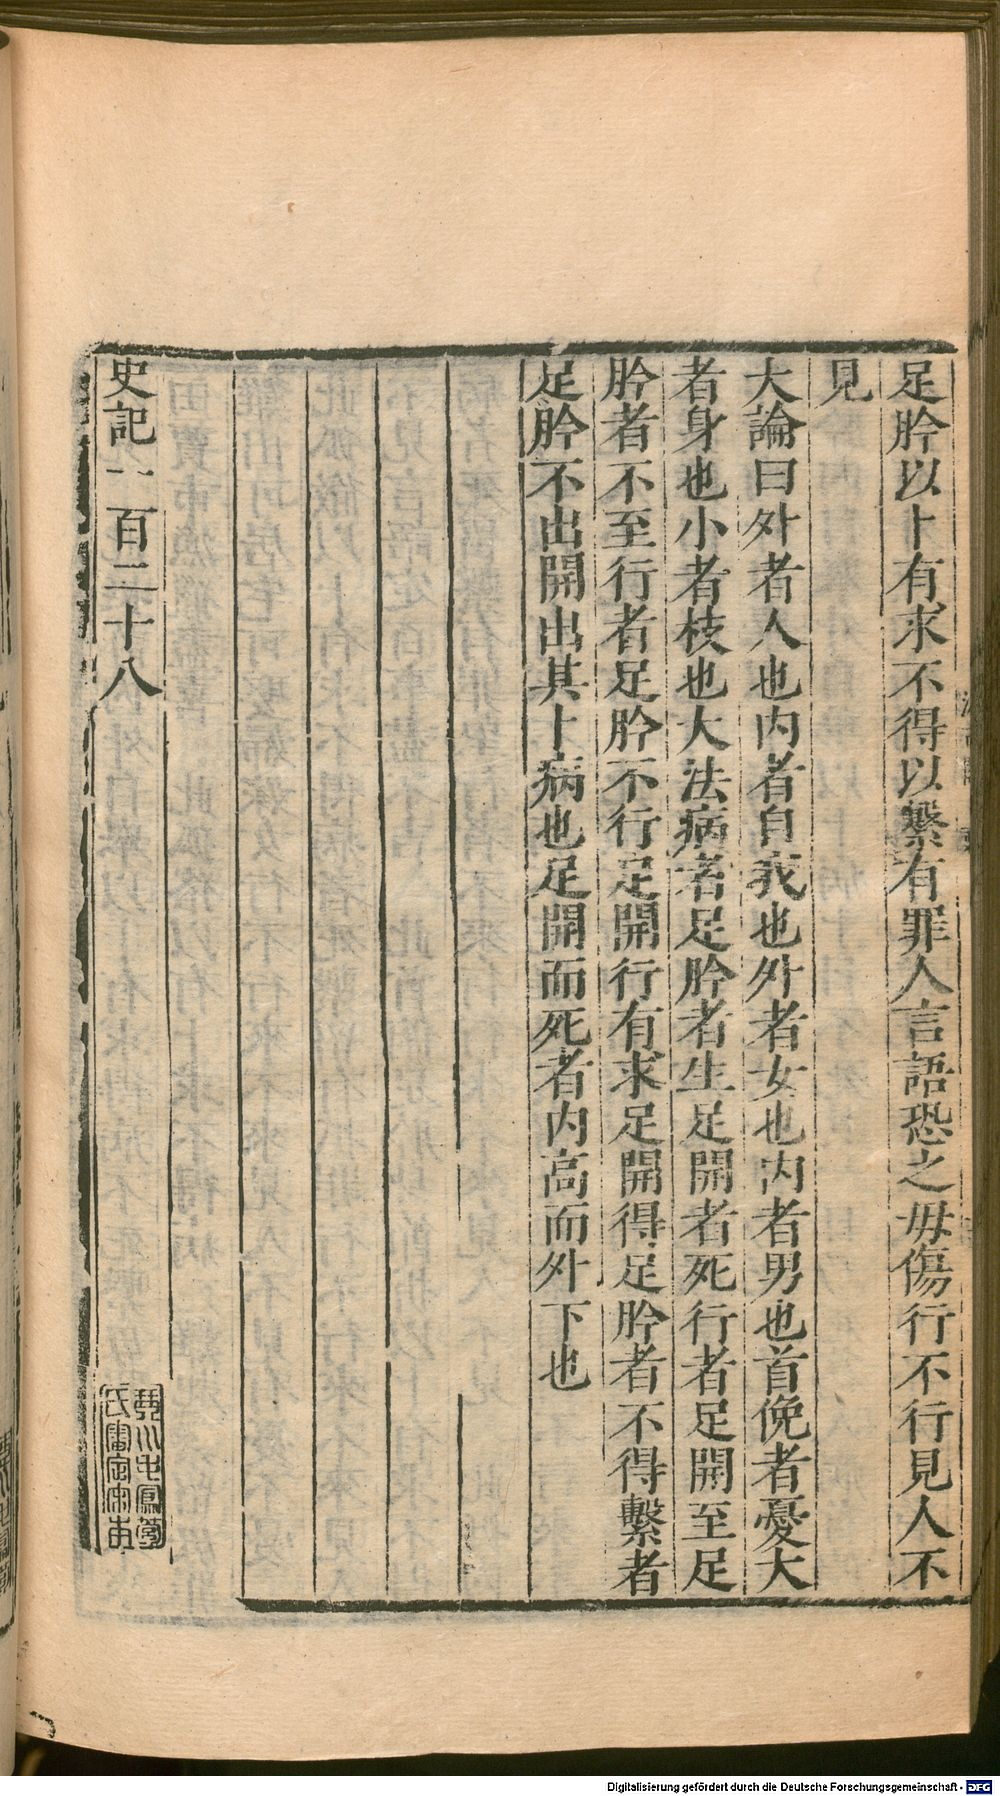 足肣以卜有求不得以繫有罪人言語恐之毋傷行不行見人不
見
大論曰外者人也内者自我也外者女也内者男也首俛者憂大
者身也小者枝也大法病者足肣者生足開者死行者足開至足
肣者不至行者足肣不行足開行有求足開得足肣者不得繫者
足肣不出開出其卜病也足開而死者内高而外下也
史記一百二十八
Digitalisierung gefördert durch die Deutsche Forschungsgemeinschaft - DFG